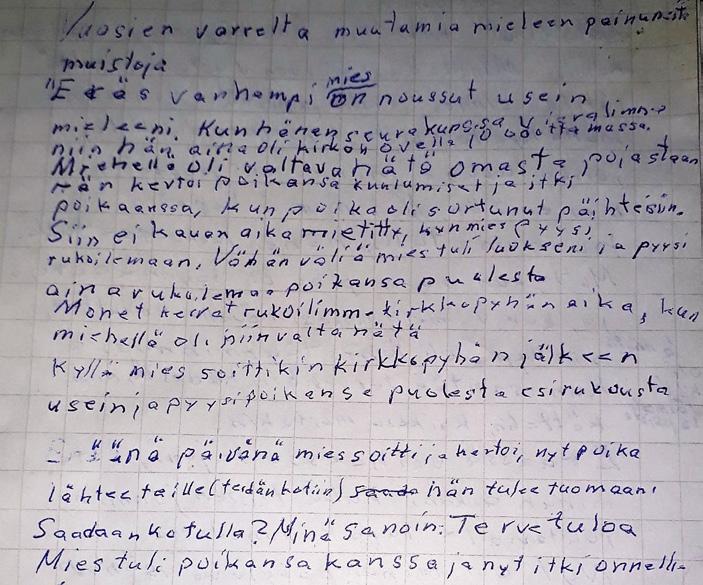 Vuosien varrelta muutamia mieleen painuneita
muistoja
"Eräs vanhempi mies on noussut usein
mieleeni. Kun hänen seurakunnissa vierailimme
niin hän aina oli kirkon ovella jo odottamassa.
Miehellä oli valtava hätä omasta pojastaan
Hän kertoi poikansa kuulumiset ja itki
poikaanssa, kun poika oli sortunut päihteisiin.
Siin ei kauan aika mietitty, kun mies pyysi
rukoilemaan. Vähän väliä mies tuli luokseni ja pyysi
aina rukoilemaan poikansa puolesta
Monet kerrat rukoilimme kirkkopyhän aika, kun
miehellä oli niin valtahätä
Kyllä mies soittikin kirkkopyhän jälkeen
usein ja pyysi poikansa puolesta esirukousta
päivänä mies soitti ja kertoi, nyt poika
lähtee teille (teidän kotiin) saada hän tulee tuomaani
Saadaanko tulla? Minä sanoin: Tervetuloa
Mies tuli poikansa kanssa ja nyt itki onnelli-